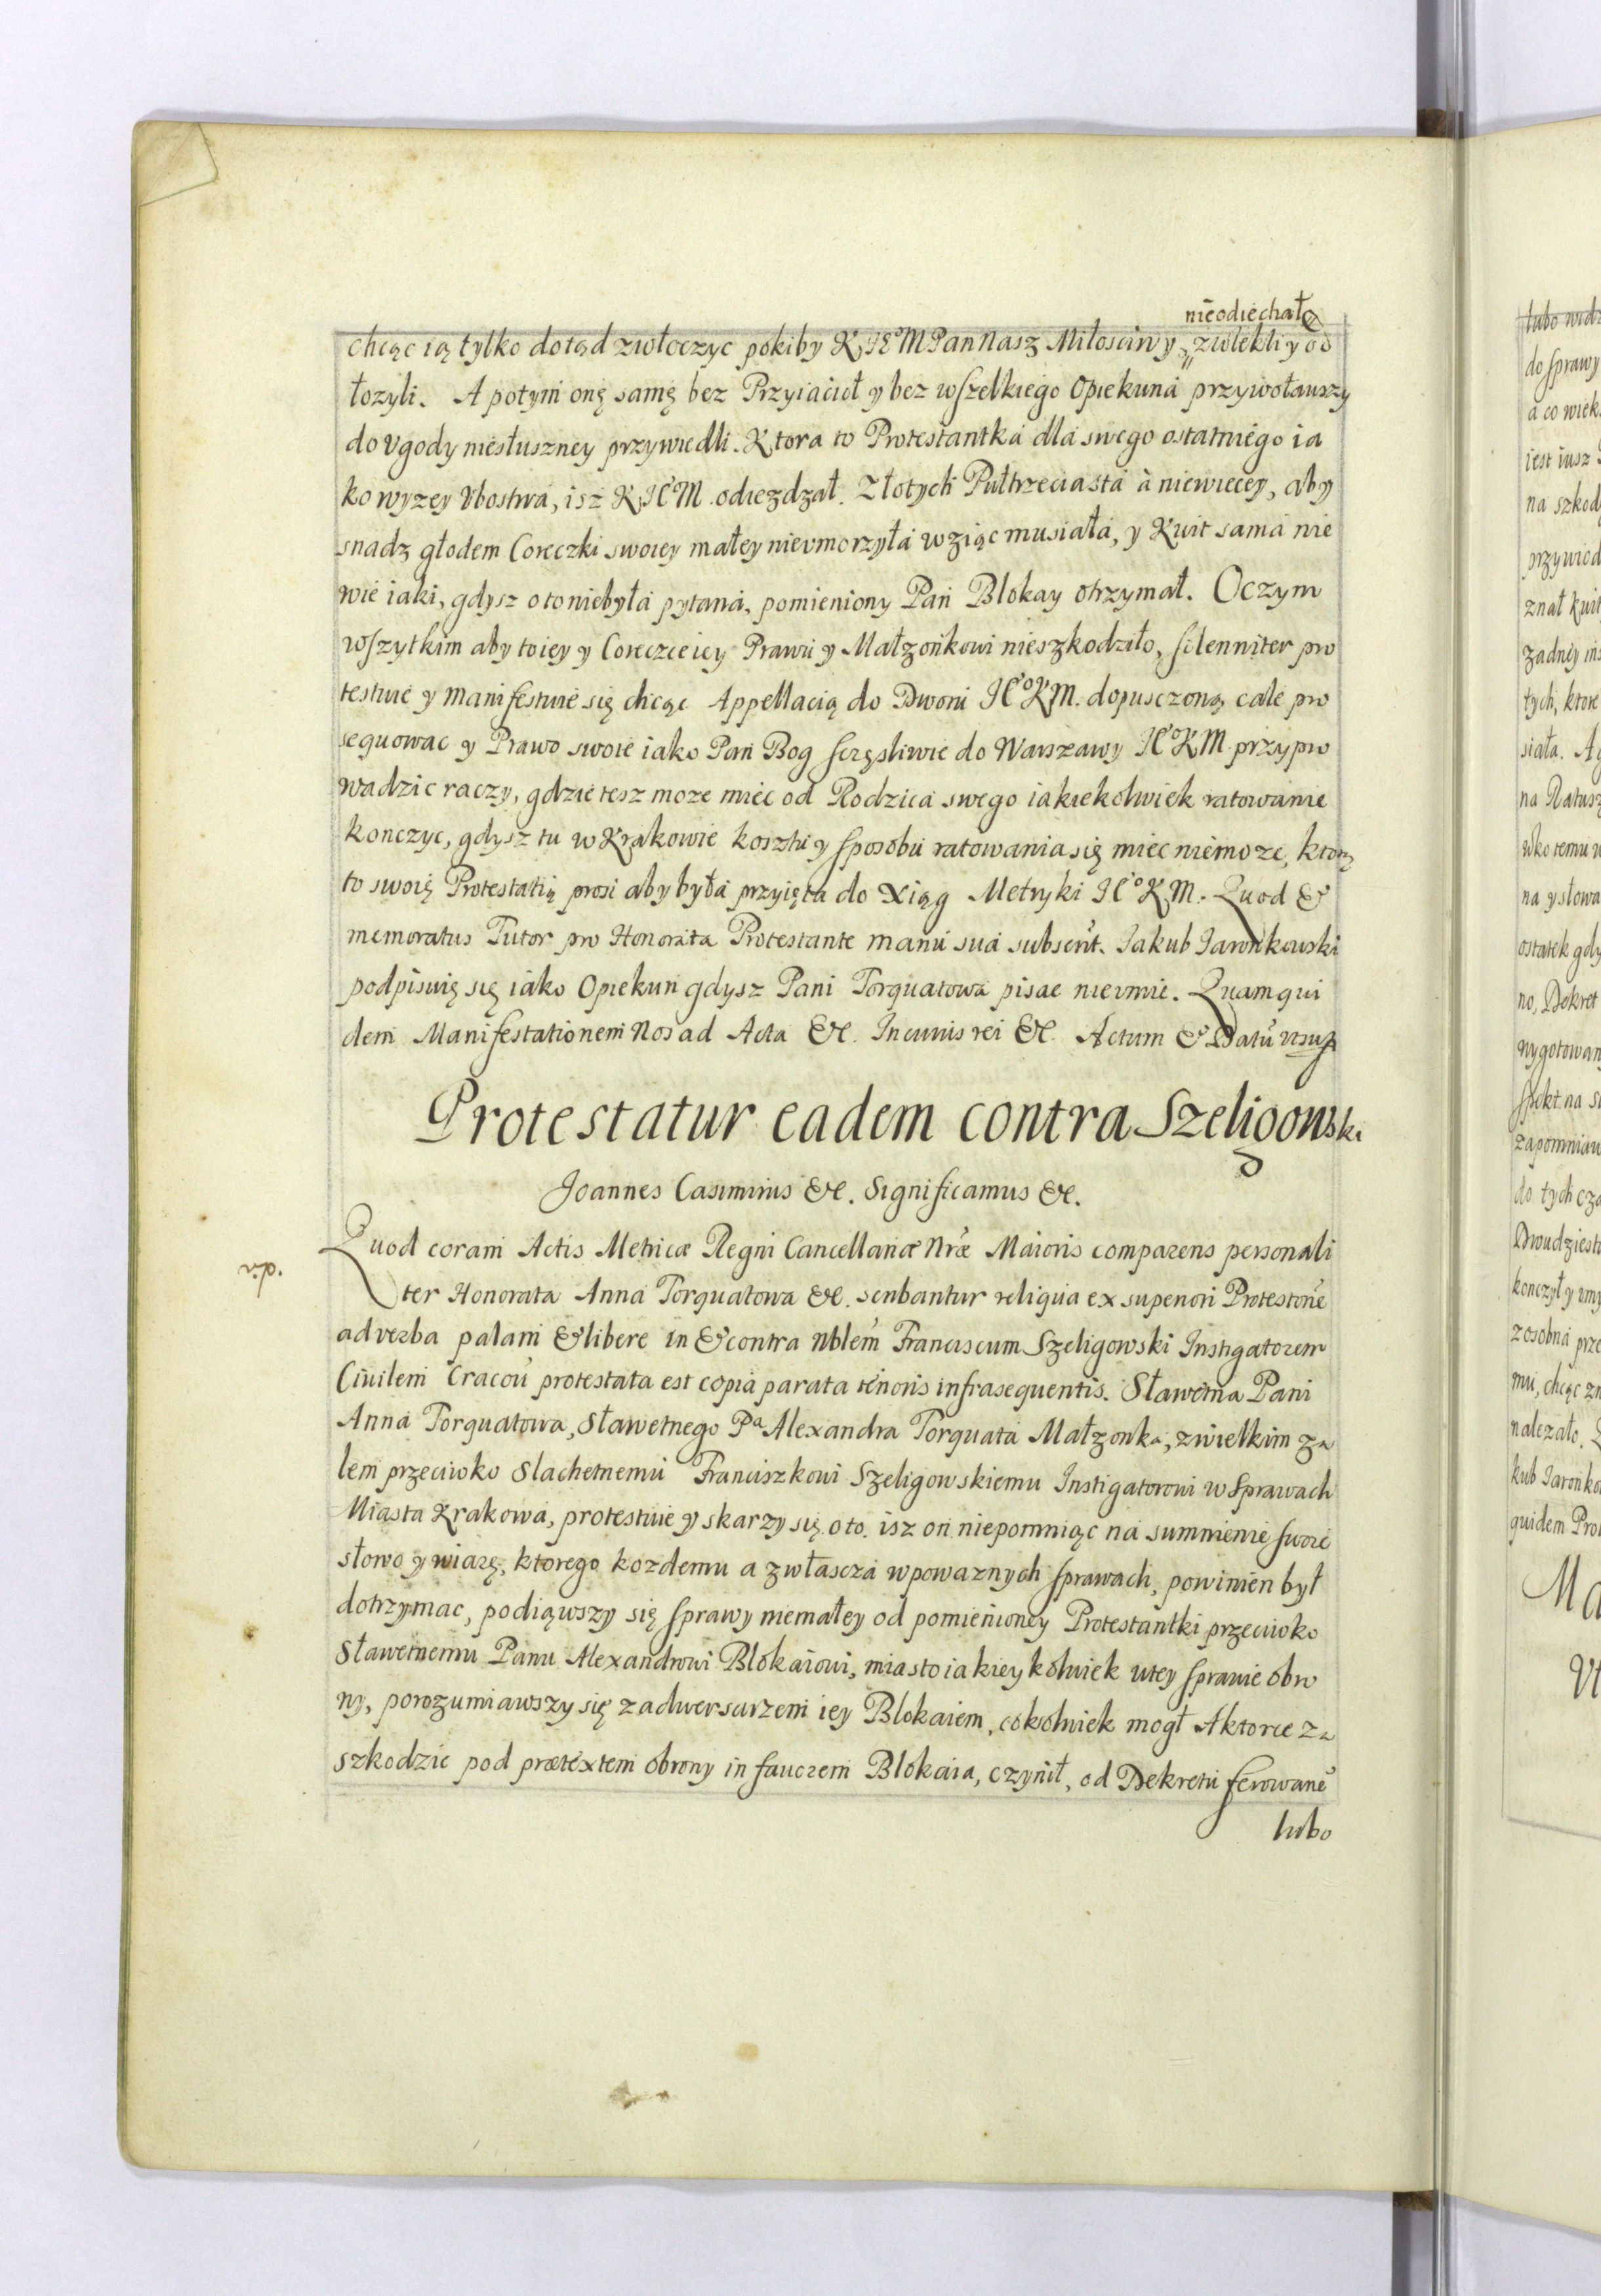 nieodiechałe
chcąc ią tylko dotąd zwłoczyc pokiby K JE°M Pan Nasz Miłosciwy, zwlekli y od
łozyli. A potym onę samę bez Przyiacioł y bez wszelkiego Opiekuna przywoławszy
do Vgody niesłuszney przywiedli. Ktora to Protestantka dla swego ostatniego ia
ko wyzey Vbostwa, isz K JE°M odiezdzał. Złotych Pułtrzeciasta à niewiecey, aby
snadz głodem Coreczki swoiey małey nievmorzyła wziąc musiała, y Kwit sama nie
wie iaki, gdysz o to niebyła pytana, pomieniony Pan Blokay otrzymał. Oczym
wszytkim aby to iey y Coreczce iey Prawu y Małzonkowi nieszkodziło, solenniter pro
testuie y manifestuie się chcąc Appellacią do Dworu JE°KM. dopusczoną cale pro
sequowac y Prawo swoie iako Pan Bog sczęsliwie do Warszawy JE°KM przypro
wadzic raczy, gdzie tesz moze miec od Rodzica swego iakiekolwiek ratowanie
konczyc, gdysz tu w Krakowie kosztu y sposobu ratowania się miec niemoze, ktorą
to swoię Protestatią prosi aby była przyięta do Xiąg Metryki JE°KM. Quod &
memoratus Tutor pro Honorata Protestante manu sua subscrit. Jakub Jaronkowski
podpisuię się iako Opiekun gdysz Pani Torquatowa pisac nieumie. Quam qui
dem Manifestationem Nos ad Acta &c. In cuius rei &c. Actum & Datũ ut sup
Protestatur eadem contra Szeligowski
Joannes Casimirus &c. Significamus &c.
Quod coram Actis Metricæ Regni Cancellariæ Nræ Maioris comparens personali
ter Honorata Anna Torquatowa &c. scribantur reliqua ex superiori Protestone
ad verba palam & libere in & contra Nblem Franciscum Szeligowski Instigatorem
Ciuilem Cracou protestata est copia parata tenoris infrasequentis. Sławetna Pani
Anna Torquatowa, Sławetnego Pa Alexandra Torquata Małzonka, z wielkim za
lem przeciwko Slachetnemu Franciszkowi Szeligowskiemu Instigatorowi w Sprawach
Miasta Krakowa, protestuie y skarzy się o to. isz on niepomniąc na sumnienie swoie
słowo y wiarę, ktorego kozdemu a zwłascza w powaznych sprawach, powinien był
dotrzymac, podiąwszy się sprawy niemałey od pomienioney Protestantki przeciwko
Sławetnemu Panu Alexandrowi Blokaiowi, miasto iakieykolwiek w tey sprawie obro
ny, porozumiawszy się z adwersarzem iey Blokaiem, cokolwiek mogł Aktorce za
szkodzic pod prætextem obrony in fauorem Blokaia, czynił, od Dekretu ferowane
lubo